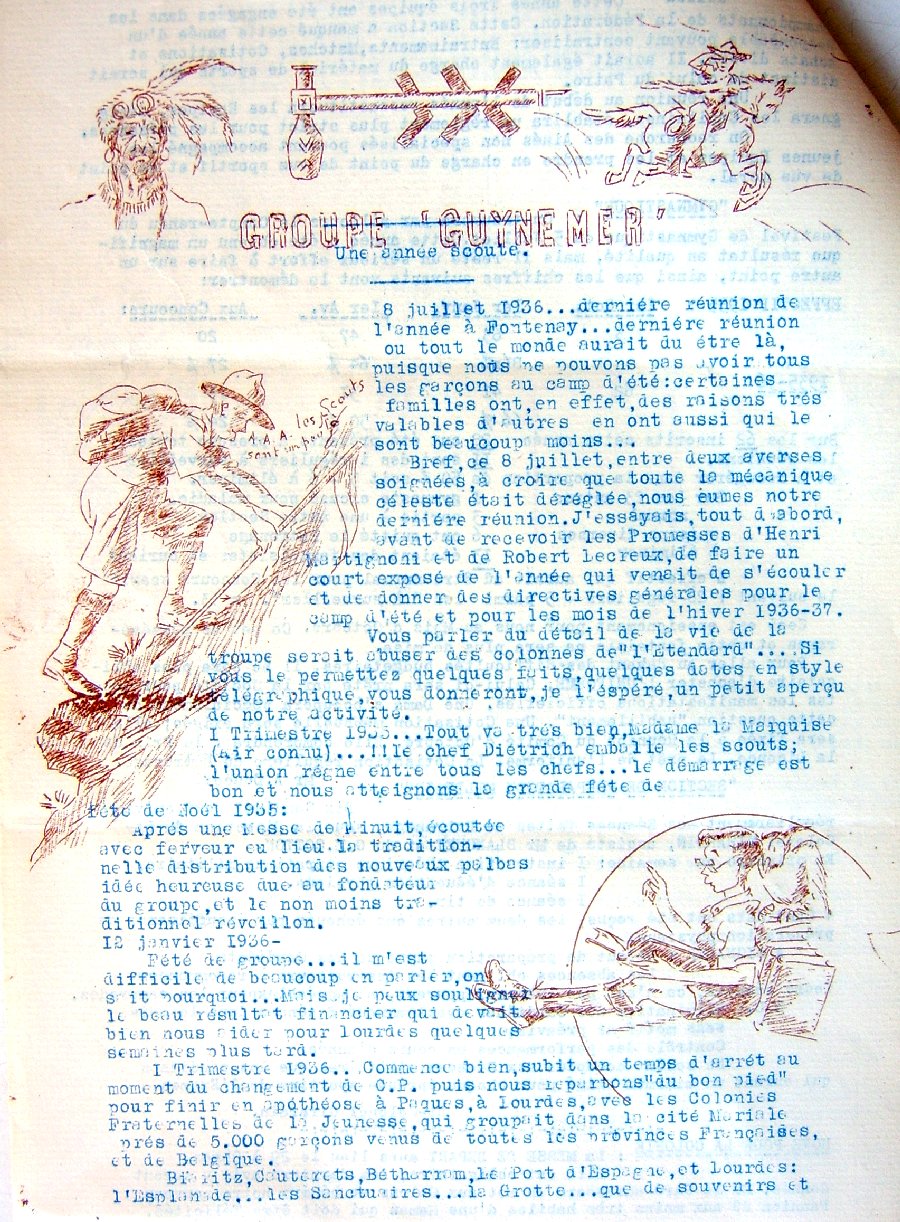 GROUPE 'GUYNEMER'
Une année scoute.
8 juillet 1936...derniére réunion de
l'année à Fontenay...derniére réunion
ou tout le monde aurait du étre là,
puisque nous ne pouvons pas avoir tous
les garçons au camp d'été:certaines
familles ont,en effet,des raisons trés
valables d'autres en ont aussi qui le
sont beaucoup moins...
Bref,ce 8 juillet,entre deux averses
soignées,à croire que toute la mécanique
céleste était déréglée,nous eumes notre
derniére réunion.J'essayais,tout d'abord,
avant de recevoir les Promesses d'Henri
Martignoni et de Robert Lecreux,de faire un
court exposé de l'année qui venait de s'écouler
et de donner des directives générales pour le
camp d'été et pour les mois de l'hiver 1936-37.
Vous parler du détail de la vie de la
troupe serait abuser des colonnes de"l'Etendard"....Si
vous le permettez quelques faits,quelques dates en style
télégraphique,vous donneront,je l'éspéré,un petit aperçu
de notre activité.
I Trimestre 1935...Tout va trés bien,Madame la Marquise
(Air connu)...!!le chef Diétrich emballe les scouts;
l'union régne entre tous les chefs...le démarrage est
bon et nous atteignons la grande féte de
féte de Noél 1935:
Aprés une Messe de Minuit,écoutée
avec ferveur eu lieu la tradition-
nelle distribution des nouveaux palbas
idée heureuse due au fondateur
du groupe,et le non moins tra-
ditionnel réveillon.
12 janvier 1936-
Fété de groupe...il m'est
difficile de beaucoup en parler,on
sait pourquoi...Mais je peux souligner
le beau résultat financier qui devait
bien nous aider pour lourdes quelques
semaines plus tard.
I Trimestre 1936...Commence bien,subit un temps d'arrét au
moment du changement de C.P. puis nous repartons"du bon pied"
pour finir en apothéose à Paques,à Lourdes,avec les Colonies
Fraternelles de la Jeunesse,qui groupait dans la cité Mariale
prés de 5.000 garçons venus de toutes les provinces Françaises,
et de Belgique.
Biarritz,Cauterets,Bétharram,Le Pont d'Espagne,et Lourdes:
l'Esplanade...les Sanctuaires...la Grotte...que de souvenirs et
A.A. les Scouts
sont